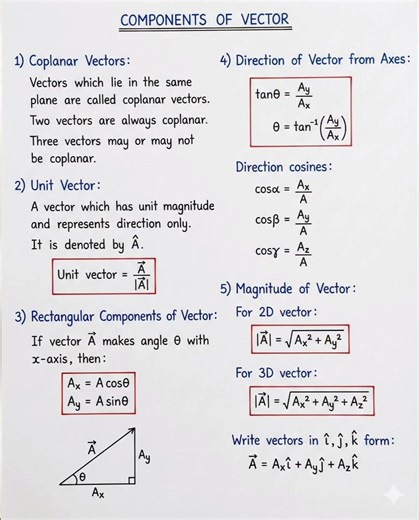 COMPONENTS OF VECTOR
1) Coplanar Vectors:
Vectors which lie in the same
plane are called coplanar vectors.
Two vectors are always coplanar.
Three vectors may or may not
be coplanar.
2) Unit Vector:
A vector which has unit magnitude
and represents direction only.
It is denoted by Â.
Unit vector = A⃗ / |A⃗|
3) Rectangular Components of Vector:
If vector A⃗ makes angle θ with
x-axis, then:
Aₓ = A cosθ
Aᵧ = A sinθ
A⃗
Aᵧ
θ
Aₓ
4) Direction of Vector from Axes:
tanθ = Aᵧ / Aₓ
θ = tan⁻¹(Aᵧ / Aₓ)
Direction cosines:
cosα = Aₓ / A
cosβ = Aᵧ / A
cosγ = A_z / A
5) Magnitude of Vector:
For 2D vector:
|A⃗| = √(Aₓ² + Aᵧ²)
For 3D vector:
|A⃗| = √(Aₓ² + Aᵧ² + A_z²)
Write vectors in î, ĵ, k̂ form:
A⃗ = Aₓî + Aᵧĵ + A_zk̂